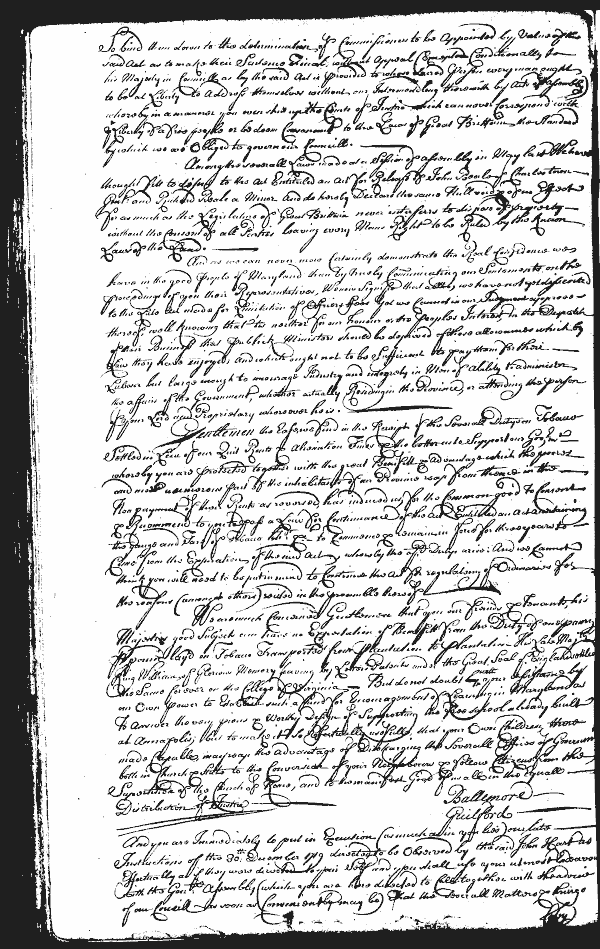 To bind them down to the determination of Commissioners to be Appointed by Vertue of the
said Act as to make their Sentence Final, without Appeal (Excepted Conditionally to
his Majesty in Councill as by the said Act is provided to
to be at Liberty to Address themselves without any Intermedling therewith by Act of Assembly
whereby in a manner you even shut up the Courts of Justice which can never Correspond with
the Liberty of a free people or be deem'd Consonant to the Laws of Great Brittain the Standard
by which we are Obliged to govern our Councills.
Among the severall Laws made at a Session of Assembly in May last We have
thought fit to dissent to the Act Entituled an Act for Reliefe of John Beale of Charles town
Gent. and Richard Beale a Minor And do hereby Declare the same Null and void of no Effect
For as much as the Legislature of Great Brittain never interferes to dispose of property
without the consent of all Parties leaving every Mans Right to be Ruled by the known
Laws of the Land.
And as we can never more Certainly demonstrate the Real Confidence we
have in the good People of Maryland than by freely Communicating our Sentiments on the
proceedings of you their Representatives, We now Signifie that altho we have not yet dissented
to the Act made for Limitation of Officers Fees Yet we Cannot in our Judgment approve
thereof well knowing that tis neither for our honour or the Peoples Interest, in the Dispatch
of their Business that Publick Ministers should be deprived of those allowances which by
Law they have enjoyed And which ought not to be Sufficient to pay them for their
Labour but large enough to encourage Industry and integrity in Men of Ability to administer
the affairs of the Government, whether actually Residing in the Province, or attending the person
of your Lord and Proprietary wheresoever he is.
Gentlemen the Ease we find in the Receipt of the Severall Dutys on Tobacco
Settled in Lieu of our Quit Rents & Alienation Fines & the better to Support our Governmt
whereby you are protected together with the great Benefitt & Advantage which the poorer
and most numerous part of the inhabitants of our Province reap from thence in the
Non payment of their Rents as reserved, has induced us for the Common good to Consent
& Recommend to you to pass a Law for Continuance of the Act Entituled an Act ascertaining
the gauge and Tare of Tobacco hhds. &c to Commence & remain in force for three years to
Come from the Expiration of the said Act, whereby the sd. Dutys arise: And we Cannot
think you will need to be put in mind to Continue the Act for regulating of Ordinaries for
the reasons (amongst others) recited in the preamble thereof.
We are much Concerned Gentlemen that you our friends & Tenants, his
Majestys good Subjects can have no Expectation of Benefitt from the Duty of one penny
& pound layd on Tobacco Transported from plantation to plantation the Late Majesty
King William of Glorious Memory having by Letters Patents under the Great Seal of England settled
the same forever on the College of Virginia. But do not doubt by your assistance by
our Own Power to Establish such a fund for Encouragement of Learning in Maryland as
To Answer the very pious & Worthy design of Supporting the free school already built
at Annapolis, but to make it so substantially usefull, that your Own Children, those
made Capable may reap the Advantage of Discharging the Severall Offices of Government
both in Church & State to the Conversion of your Neighbours & fellow Citizens from the
Superstition of the Church of Rome, and to the manifest Good of us all in the equall
Distribution of Justice
Baltemore
Guilford
And you are Immediately to put in Execution (as much as in you lies) our late
Instructions of the 30th. December 1719 directed to be Observed by the said John Hart as
Effectually as if they were directed to your Self and you shall use your utmost Endeavour
with the Genll Assembly (which you are hereby directed to call together with the advice
of our Councill as soon as Conveniently may be) that the severall Matters & things